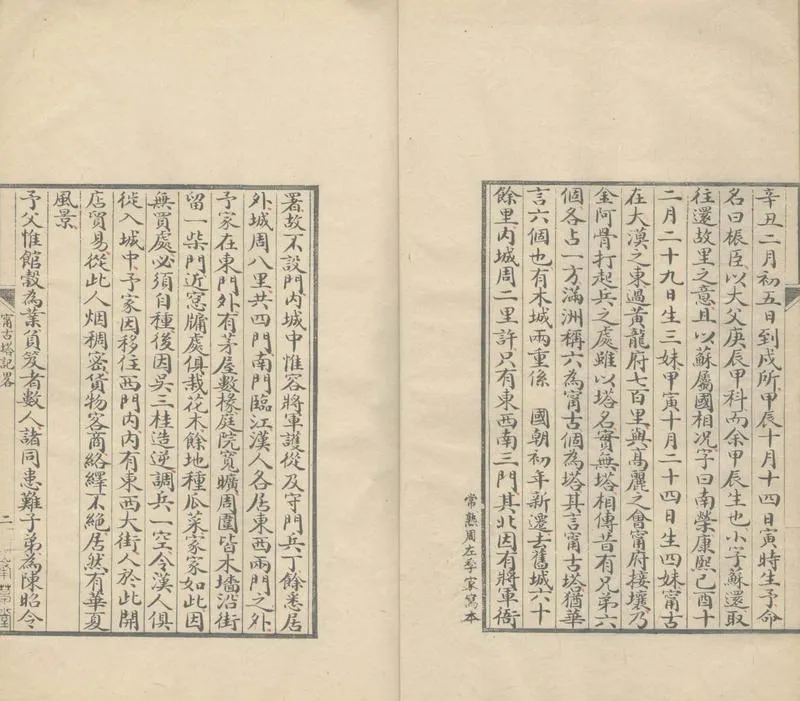 辛丑二月初五日到戍所甲辰十月十四日寅時生予命
名曰桭臣以大父庚辰甲科而余甲辰生也小字蘇還取
往還故里之意且以蘇屬國相况字曰南榮康熙己酉十
二月二十九日生三妹甲寅十月二十四日生四妹甯古
在大漠之東過黃龍府七百里與髙麗之會甯府接壤乃
金阿骨打起兵之處雖以塔名實無塔相傳昔有兄弟六
個各占一方滿洲稱六為甯古個為塔其言甯古塔猶華
言六個也有木城兩重係 國朝初年新遷去舊城六十
餘里內城周二里許只有東西南三門其北因有將軍衙
常熟周左季家寫本
署故不設門內城中惟容將軍護從及守門兵丁餘悉居
外城周八里共四門南門臨江漢人各居東西兩門之外
予家在東門外有茅屋數椽庭院寬曠周圍皆木墻沿街
留一柴門近窓牖處俱栽花木餘地種瓜菜家家如此因
無買處必須自種後因吳三桂造逆調兵一空令漢人俱
徙入城中予家因移住西門內內有東西大街人於此開
店貿易從此人烟稠密貨物客商絡繹不絕居然有華夏
風景
予父惟館穀為業負笈者數人諸同患難子弟為陳昭令
甯古塔記畧
二